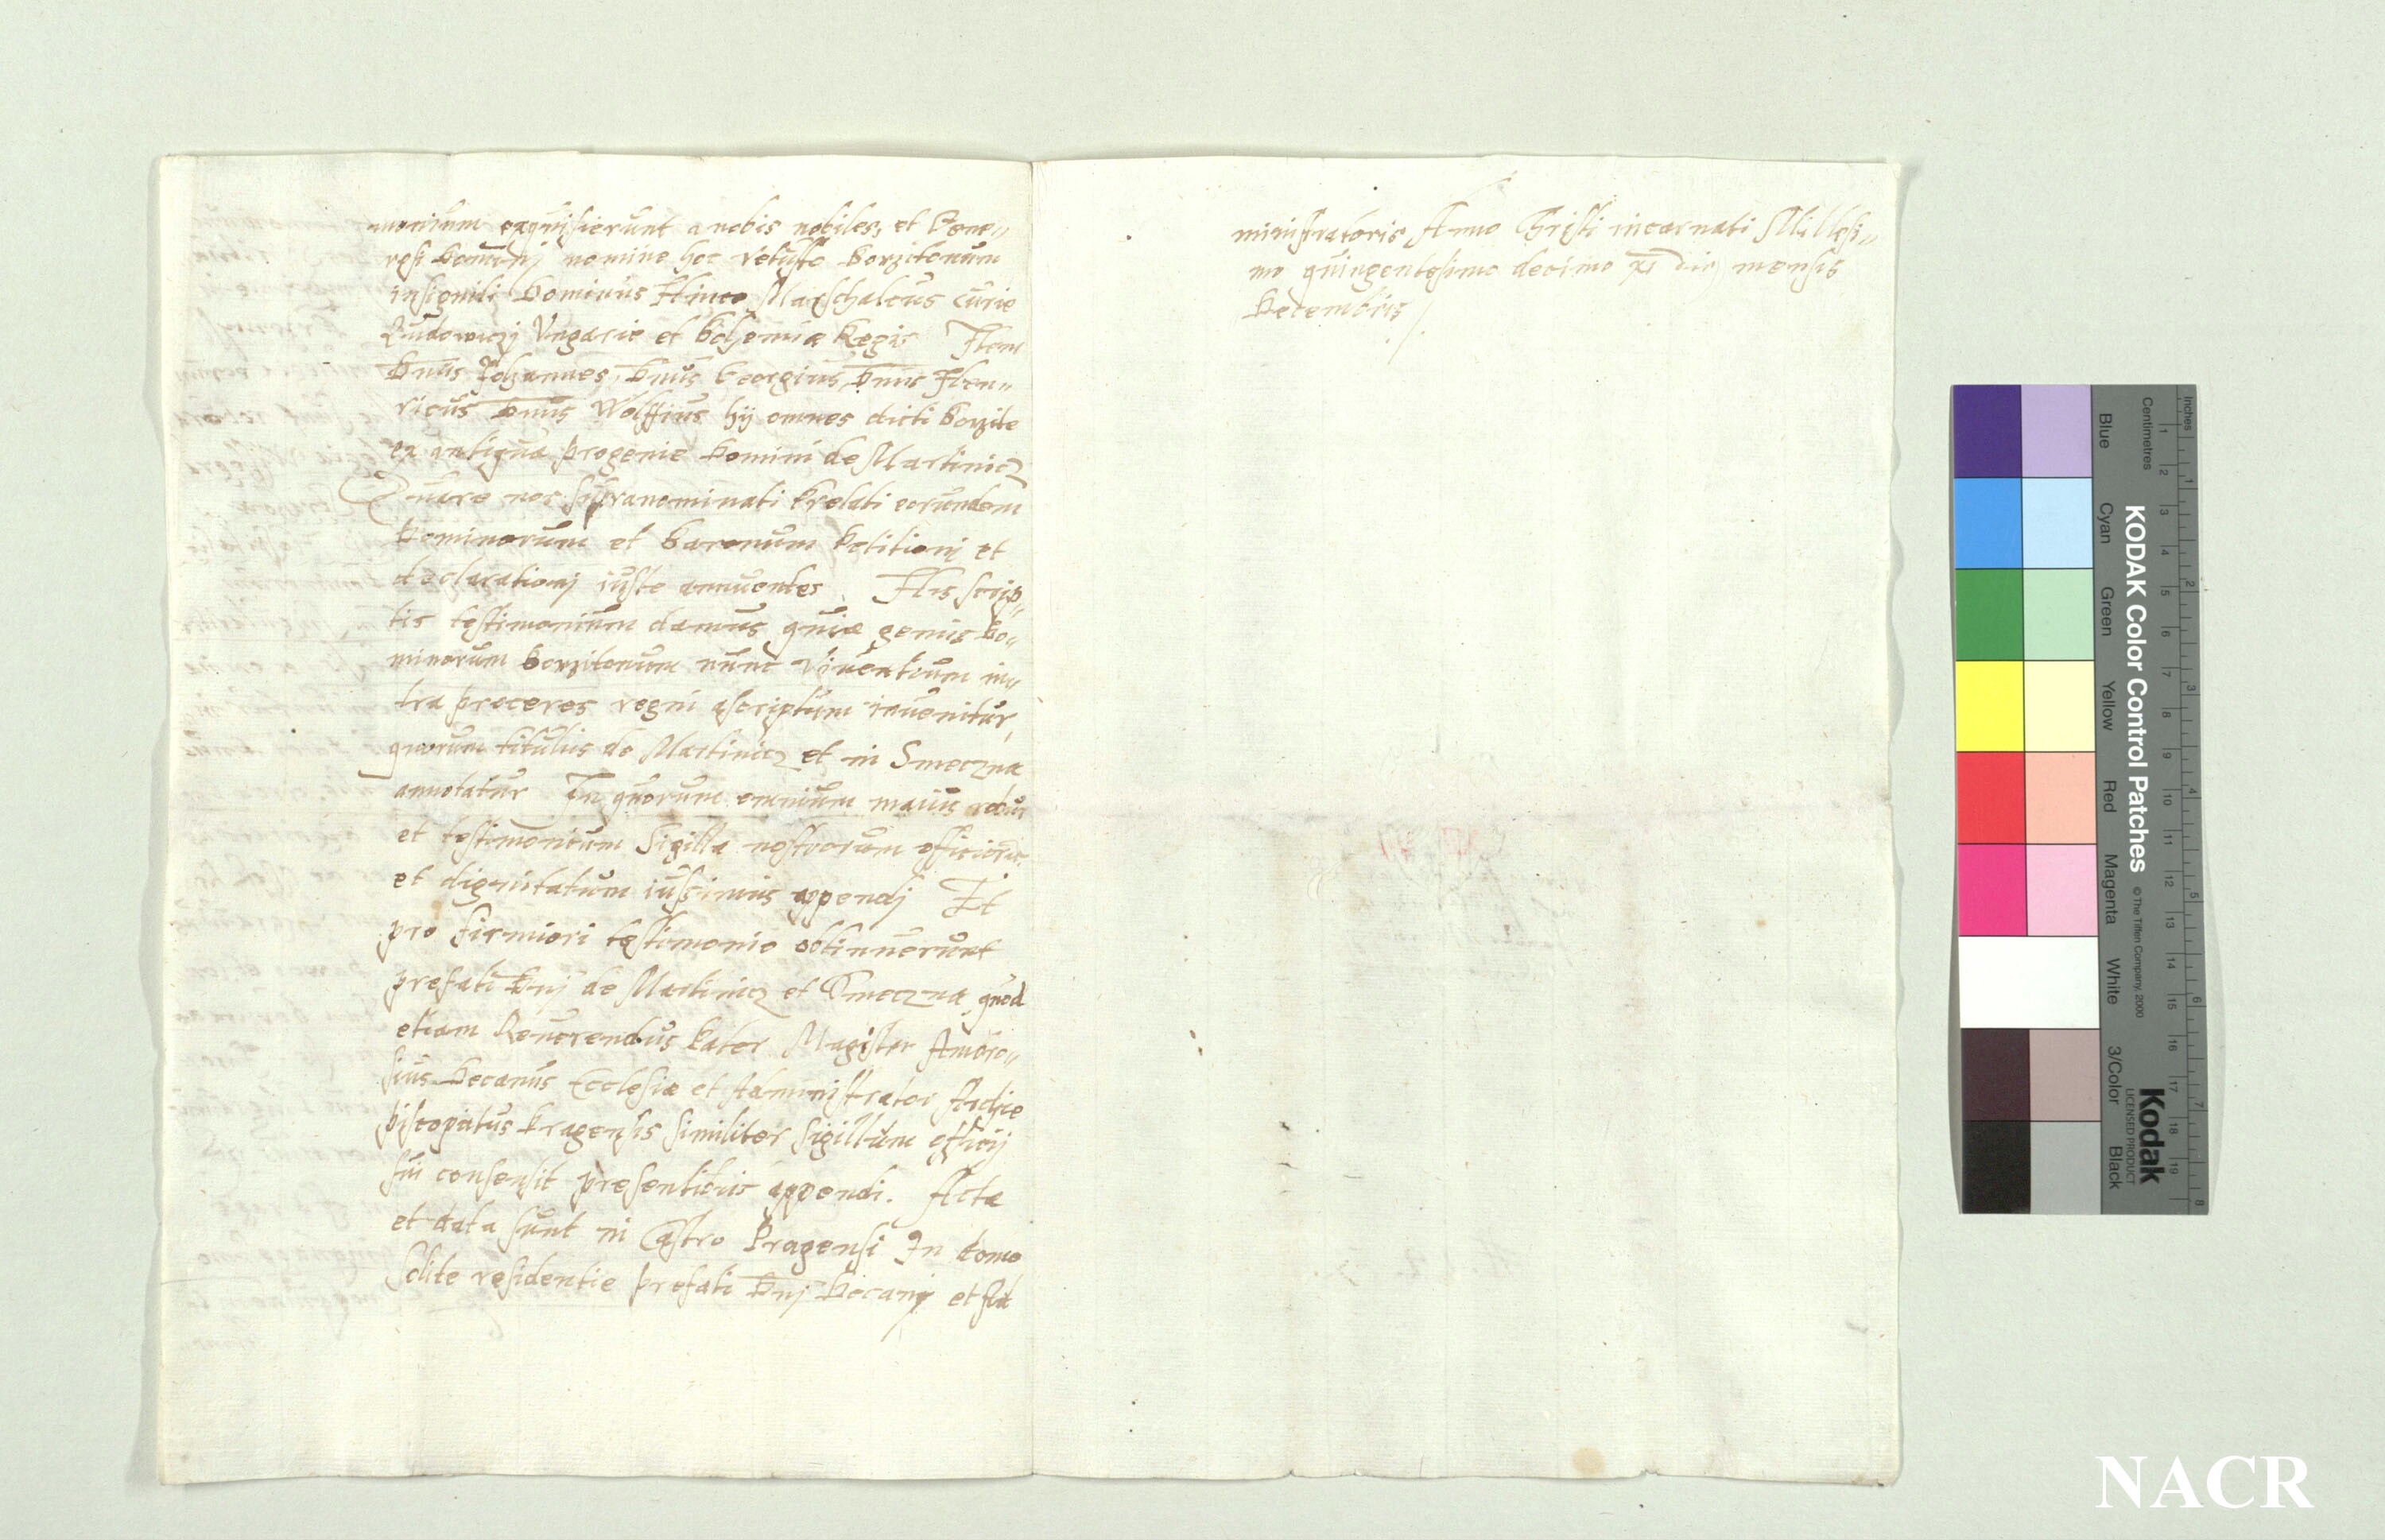 monium exquisierunt a nobis nobiles, et Gene„
rosi Domini nomine hoc vetusto Borzitonum
insigniti Dominus Hinco Marschalcus Curie
Ludowiczj Vngarie et Bohemiæ Regis Item
Dnus Johannes, Dnus Georgius, Dnus Hen„
ricus Dnus Wolffius hij omnes dicti Borzite
ex antiqua progenie Domini de Martinicz
Quare nos supranominati Prelati eorundem
Dominorum et Baronum Petitionj et
declarationj iuste annuentes. His scrip„
tis testimonium damus quia genus Do„
minorum Borzitonum nunc viventium in„
tra proceres regni ascriptum invenitur,
quorum titulus de Martinicz et in Smeczna
annotatur In quorum omnium maius robur
et testimonium Sigilla nostrorum officiorum
et dignitatum iussimus appendj Et
pro firmiori testimonio obtinuerunt
prefati Dnj de Martinicz et Smeczna quod
etiam Reverendus Pater Magister Ambro„
sius Decanus Ecclesiæ et Administrator Archie
piscopatus Pragensis similiter Sigillum officij
sui consensit presentibus appendi. Acta
et data sunt in Castro Pragensi In domo
Solite residentie prefati Dnj Decanj et Ad
ministratoris Anno Christi incarnati Millesi„
mo quingentesimo decimo XI die mensis
Decembris
KODAK Color Control Patches
© The Tiffen Company, 2000
Kodak
LICENSED PRODUCT
Inches
Centimetres
1 2 3 4 5 6 7 8 9 10 11 12 13 14 15 16 17 18 19
1 2 3 4 5 6 7 8
Blue Cyan Green Yellow Red Magenta White 3/Color Black
NACR